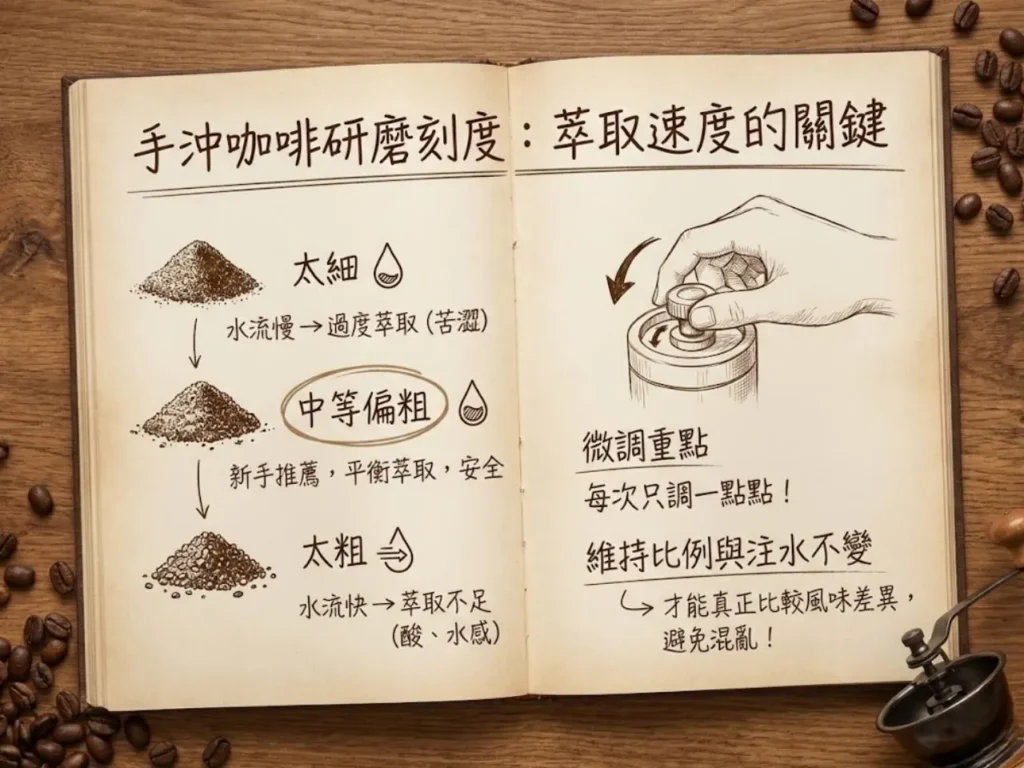 手沖咖啡研磨刻度：萃取速度的關鍵
太細
水流慢→過度萃取(苦澀)
中等偏粗
新手推薦，平衡萃取，安全
太粗
水流快→萃取不足
(酸、水感)
微調重點
每次只調一點點！
維持比例與注水不變
↳才能真正比較風味差異，
避免混亂！